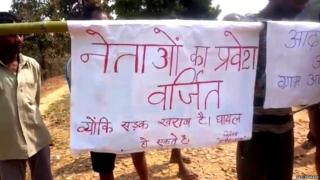 नेताओं का प्रवेश
वर्जित
क्योंकि सड़क खराब है। घायल
हो सकते है।
आद